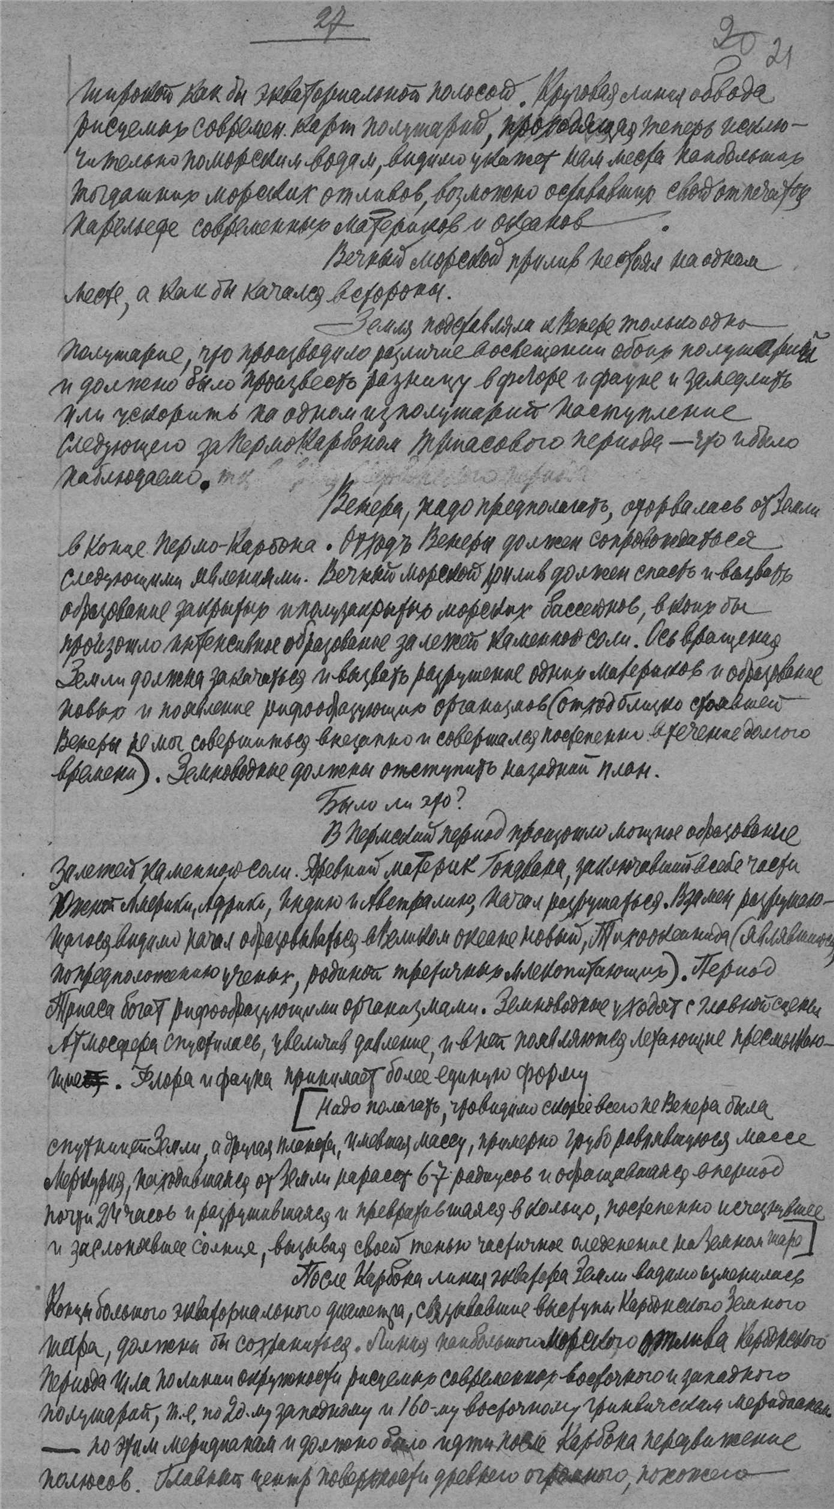 27
20 21
широкой как бы экваториальной полосой. Круговая линия обвода
рисуемых современ. карт полушарий, проходящая теперь исклю-
чительно по морским водам, видимо укажет нам места наибольших
тогдашних морских отливов, возможно оставивших свой отпечаток
на рельефе современных материков и океанов.
Вечный морской прилив не стоял на одном
месте, а как бы качался в стороны.
Земля подставляла к Венере только одно
полушарие, что производило различие в освещении обоих полушарий
и должно было произвесть разницу в флоре и фауне и замедлить
или ускорить на одном из полушарий наступление
следующего за Пермо-Карбоном Триасового периода — что и было
наблюдаемо.
Венера, надо предполагать, оторвалась от Земли
в конце Пермо-Карбона. Отход Венеры должен сопровождаться
следующими явлениями. Вечный морской прилив должен спасть и вызвать
образование закрытых и полузакрытых морских бассейнов, в коих бы
произошло интенсивное образование залежей каменной соли. Ось вращения
Земли должна закачаться и вызвать разрушение одних материков и образование
новых и появление рифообразующих организмов (отход близко стоявшей
Венеры не мог совершиться внезапно и совершался постепенно в течение долгого
времени). Земноводные должны отступить на задний план.
Было ли это?
В Пермский период произошло мощное образование
залежей каменной соли. Древний материк Гондвана, заключавший в себе части
Южной Америки, Африки, Индию и Австралию, начал разрушаться. Взамен разрушаю-
щагося видимо начал образовываться в Великом океане новый, Тихоокеанида (являвшийся,
по предположению ученых, родиной третичных млекопитающих). Период
Триаса богат рифообразующими организмами. Земноводные уходят с главной сцены
Атмосфера спустилась, увеличив давление, и в ней появляются летающие пресмыкаю-
щиеся. Флора и фауна принимает более единую форму
[Надо полагать, что видимо скорее всего не Венера была
спутницей Земли, а другая планета, имевшая массу, примерно грубо равнявшуюся массе
Меркурия, находившаяся от Земли на расст. 6-7 радиусов и обращавшаяся в период
почти 24 часов и разрушившаяся и превратившаяся в кольцо, постепенно исчезнувшее
и заслонявшее солнце, вызывая своей тенью частичное оледенение на Земном шаре]
После Карбона линия экватора Земли видимо изменилась
Концы большого экваториального диаметра, связывавшие выступы Карбонского Земного
шара, должны бы сохраниться. Линия наибольшого морского отлива Карбонского
периода шла по линии окружности рисуемых современных восточного и западного
полушарий, т.е. по 20-му западному и 160-му восточному гринвичским меридианам
— по этим меридианам и должно было идти после Карбона передвижение
полюсов. Главный центр поверхности древнего огромного, похожего